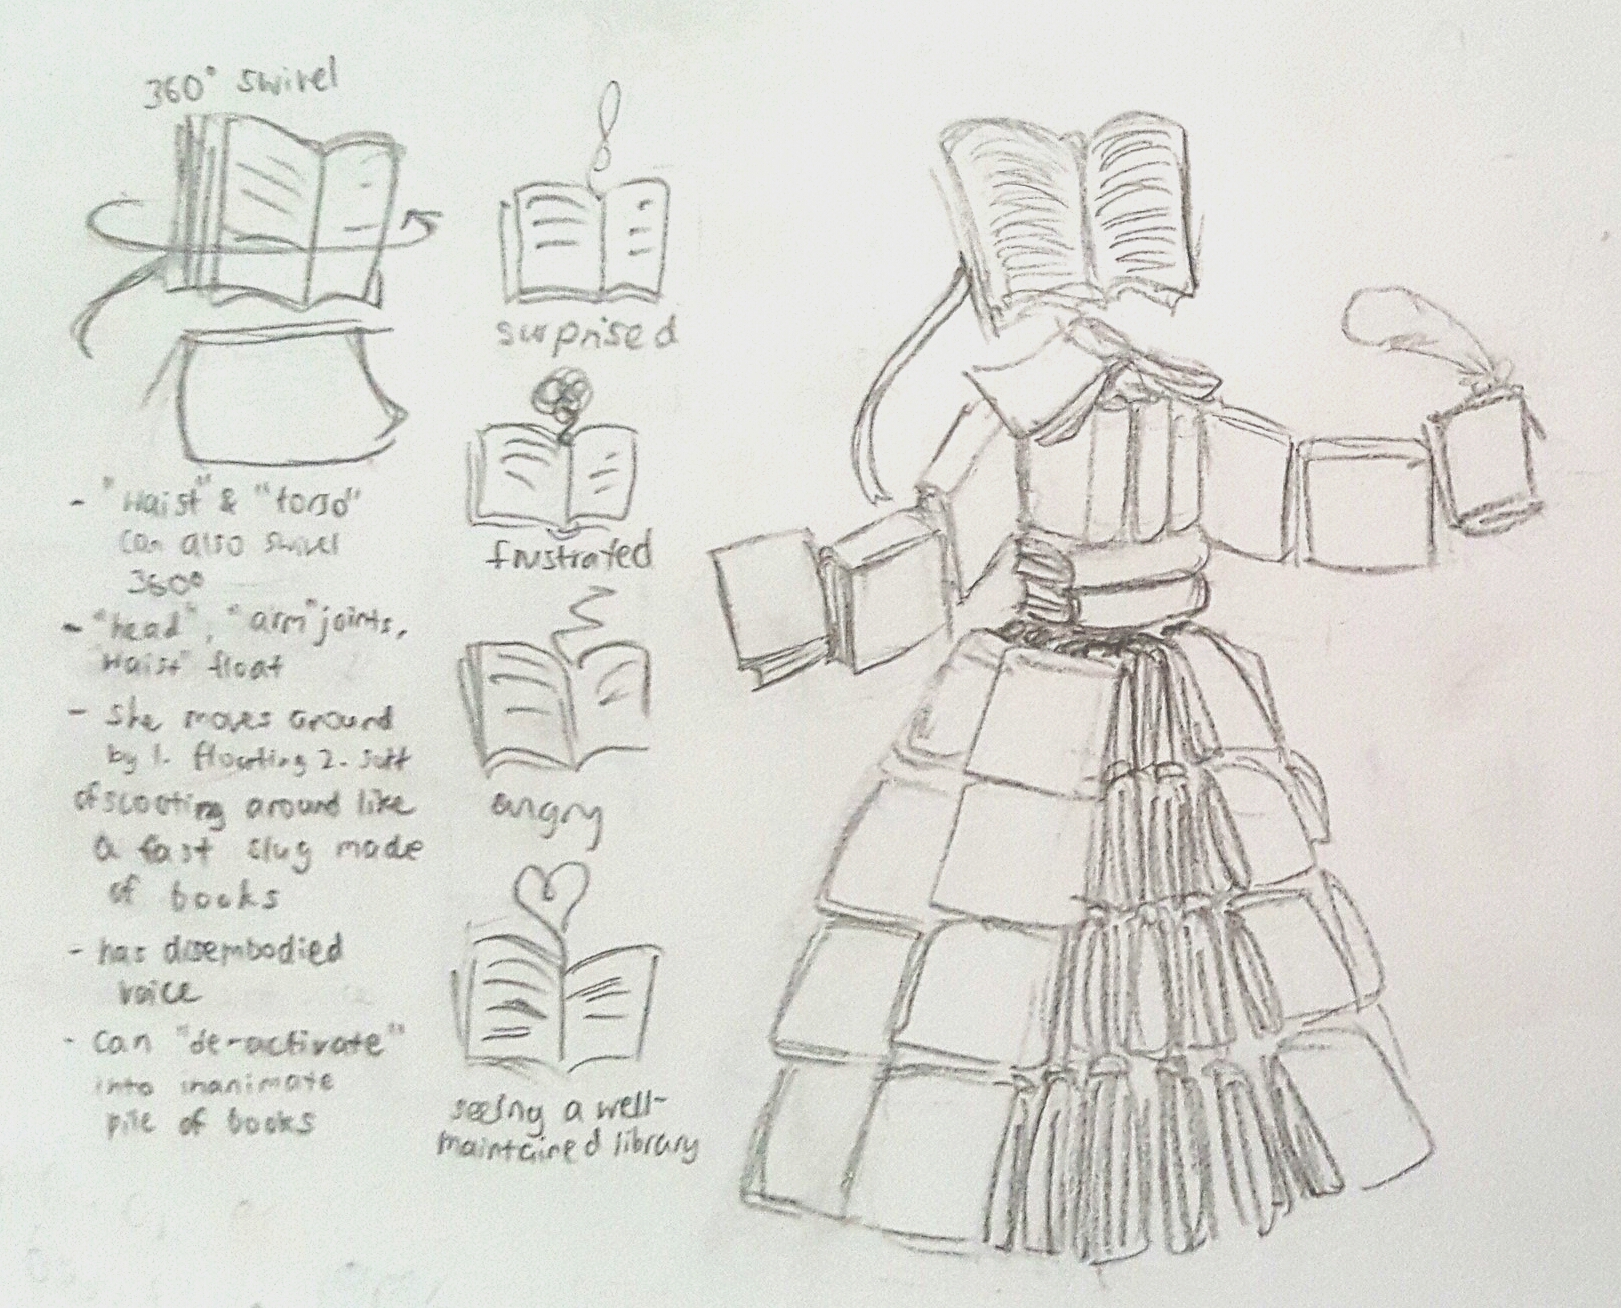 360° swivel
- "Waist" & "torso"
can also swivel
360°
- "head", "arm" joints,
"Waist" float
- She moves around
by 1. floating 2. sort
of scooting around like
a fast slug made
of books
- has disembodied
voice
- Can "de-activate"
into inanimate
pile of books
surprised
frustrated
angry
seeing a well-
maintained library